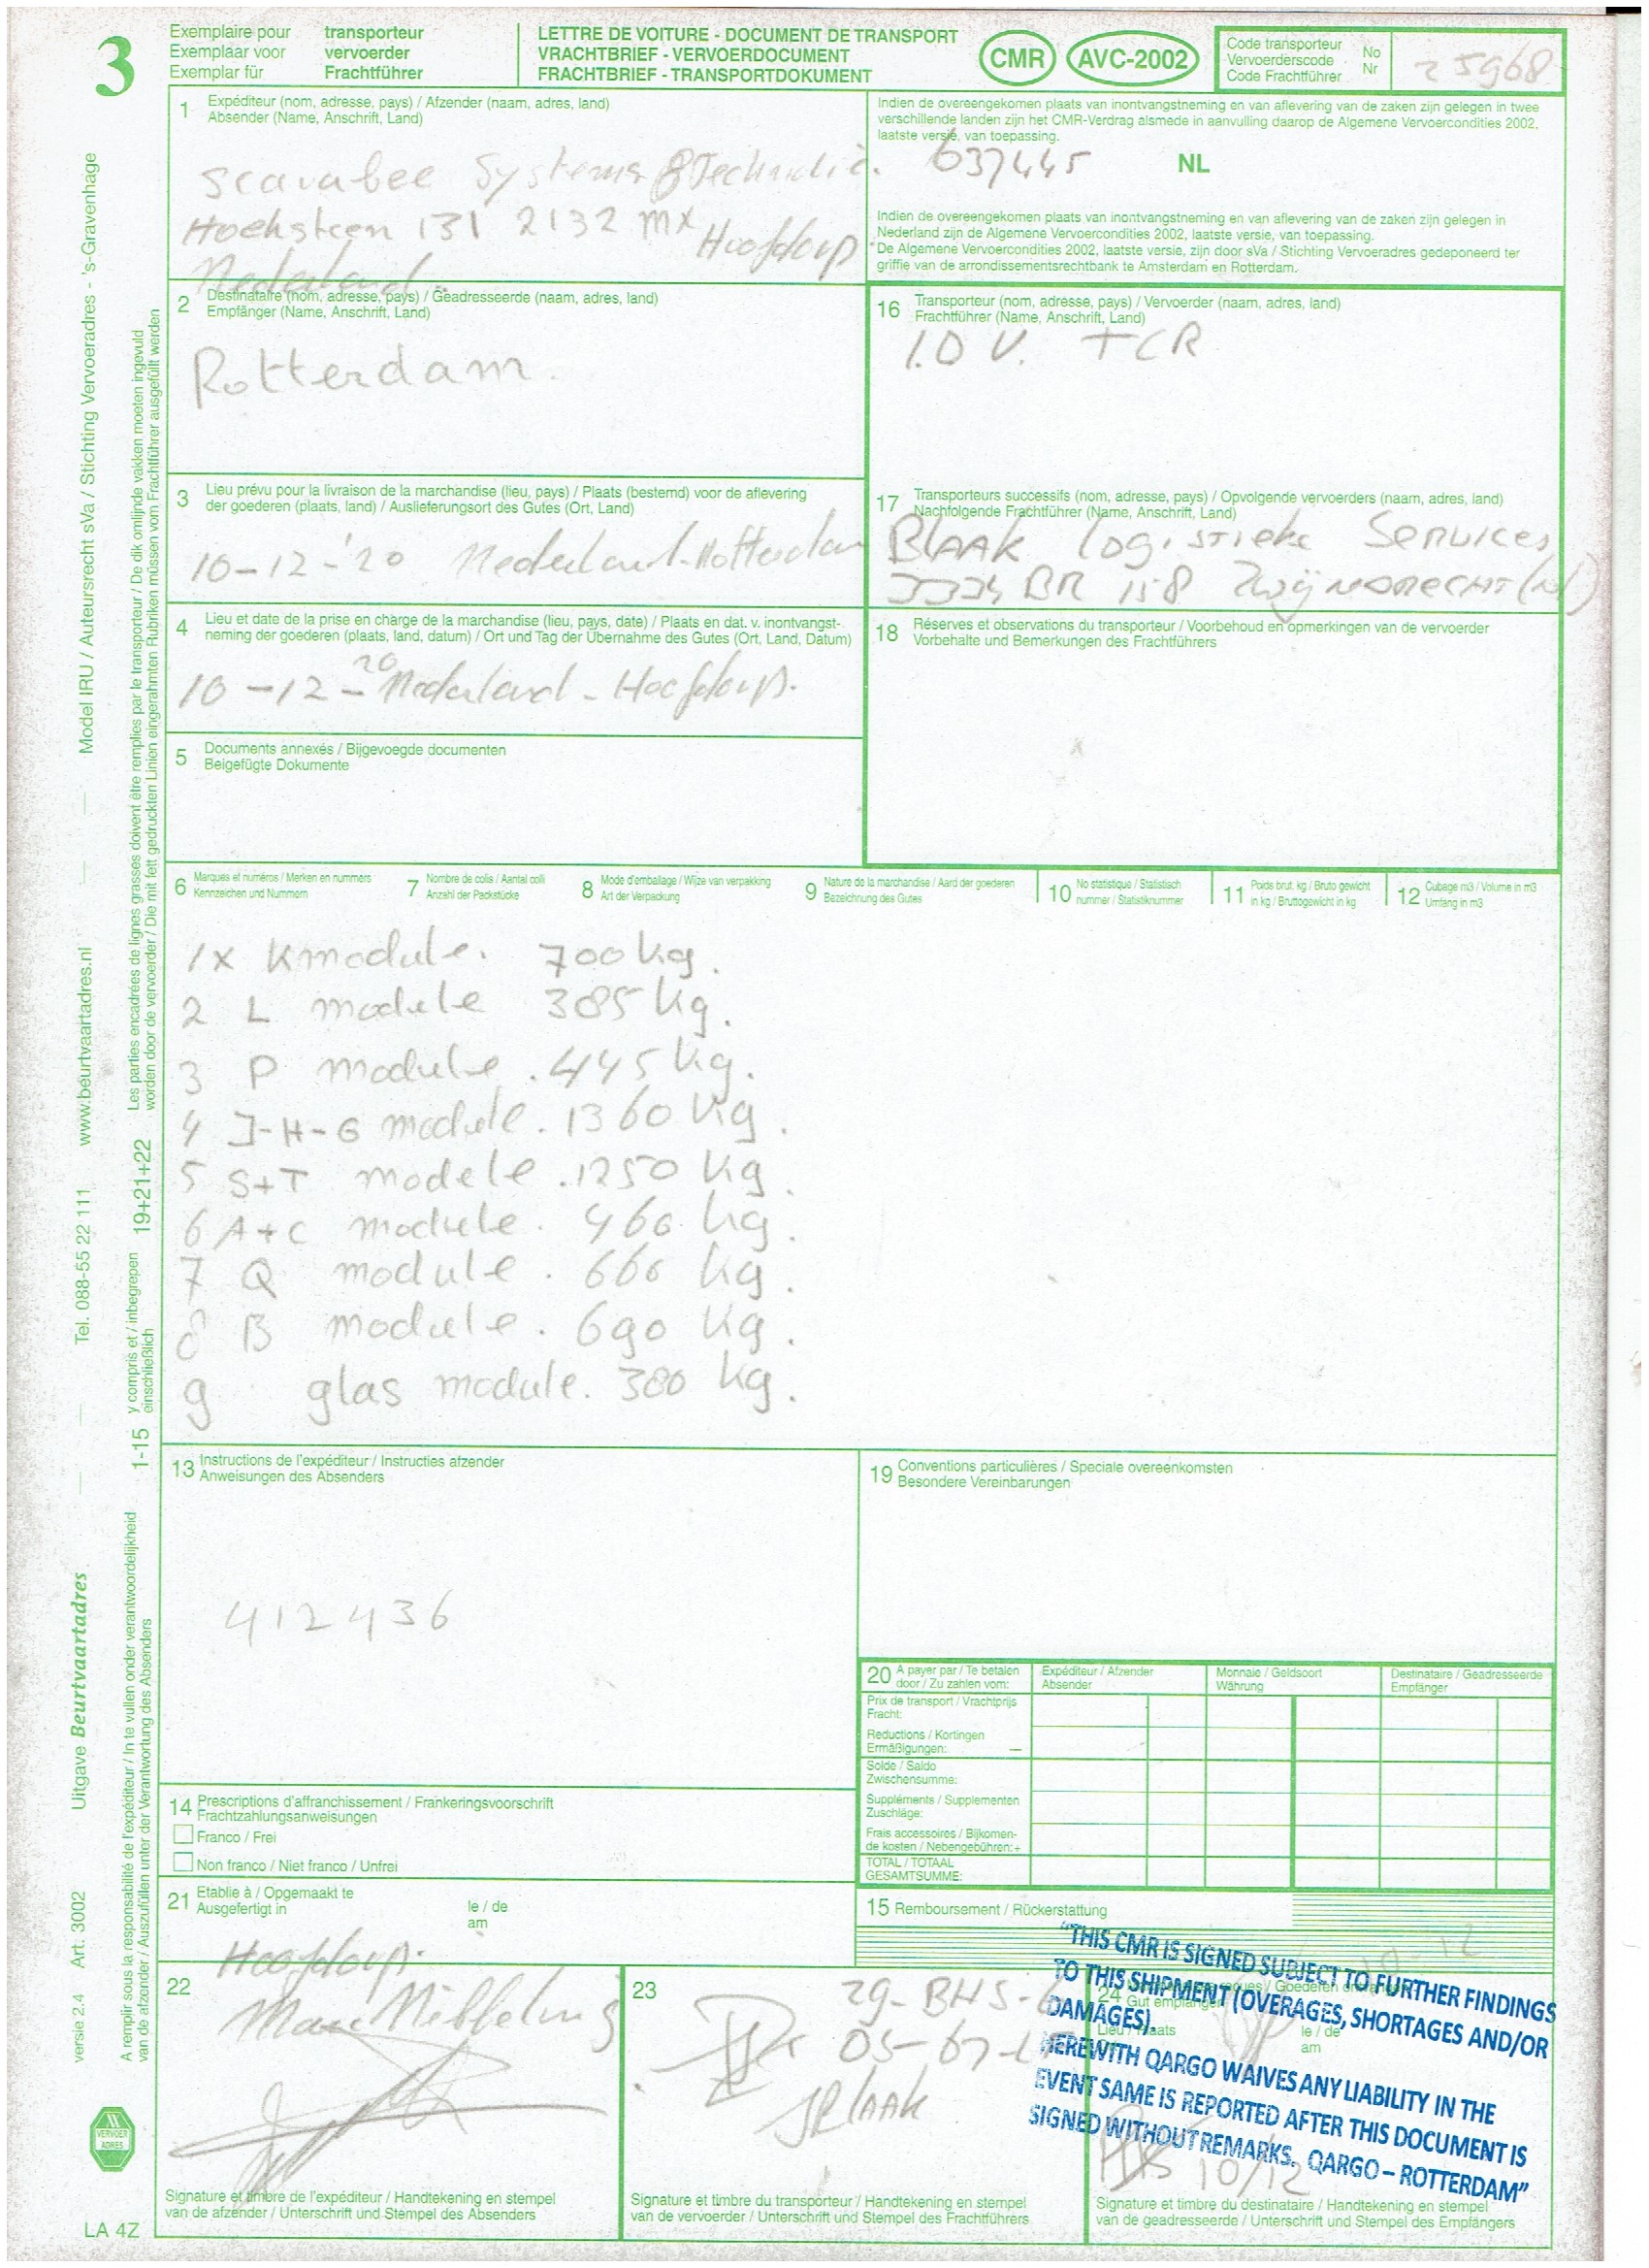 3
Exemplaire pour transporteur
Exemplaar voor vervoerder
Exemplar für Frachtführer
LETTRE DE VOITURE - DOCUMENT DE TRANSPORT
VRACHTBRIEF - VERVOERDOCUMENT
FRACHTBRIEF - TRANSPORTDOKUMENT
CMR AVC-2002
Code transporteur No
Vervoerderscode Nr
Code Frachtführer
25968
1 Expéditeur (nom, adresse, pays) / Afzender (naam, adres, land)
Absender (Name, Anschrift, Land)
Scarabee Systems &
Hoeksteen 131 2132 MX Hoofddorp
Nederland
Indien de overeengekomen plaats van inontvangstneming en van aflevering van de zaken zijn gelegen in twee
verschillende landen zijn het CMR-Verdrag alsmede in aanvulling daarop de Algemene Vervoercondities 2002,
laatste versie, van toepassing.
637445
NL
Indien de overeengekomen plaats van inontvangstneming en van aflevering van de zaken zijn gelegen in
Nederland zijn de Algemene Vervoercondities 2002, laatste versie, van toepassing.
*De Algemene Vervoercondities 2002, laatste versie, zijn door sVa / Stichting Vervoeradres gedeponeerd ter
griffie van de arrondissementsrechtbank te Amsterdam en Rotterdam.
2 Destinataire (nom, adresse, pays) / Geadresseerde (naam, adres, land)
Empfänger (Name, Anschrift, Land)
Rotterdam.
16 Transporteur (nom, adresse, pays) / Vervoerder (naam, adres, land)
Frachtführer (Name, Anschrift, Land)
I.O V. TCR
3 Lieu prévu pour la livraison de la marchandise (lieu, pays) / Plaats (bestemd) voor de aflevering
der goederen (plaats, land) / Auslieferungsort des Gutes (Ort, Land)
10-12-'20 Nederland-Rotterdam
17 Transporteurs successifs (nom, adresse, pays) / Opvolgende vervoerders (naam, adres, land)
Nachfolgende Frachtführer (Name, Anschrift, Land)
BLAAK logistieke Services
BR 158 Zwijndrecht (nl)
4 Lieu et date de la prise en charge de la marchandise (lieu, pays, date) / Plaats en dat. v. inontvangst-
neming der goederen (plaats, land, datum) / Ort und Tag der Übernahme des Gutes (Ort, Land, Datum)
10-12-20 Nederland - Hoofdorp.
18 Réserves et observations du transporteur / Voorbehoud en opmerkingen van de vervoerder
Vorbehalte und Bemerkungen des Frachtführers
5 Documents annexés / Bijgevoegde documenten
Beigefügte Dokumente
6 Marques et numéros / Merken en nummers
Kennzeichen und Nummern
7 Nombre de colis / Aantal colli
Anzahl der Packstücke
8 Mode d'emballage / Wijze van verpakking
Art der Verpackung
9 Nature de la marchandise / Aard der goederen
Bezeichnung des Gutes
10 No statistique / Statistisch
nummer / Statistiknummer
11 Poids brut. kg / Bruto gewicht
in kg / Bruttogewicht in kg
12 Cubage m3 / Volume in m3
Umfang in m3
1x K module. 700 kg.
2 L module 385 kg.
3 P module. 445 kg.
4 J-H-G module. 1360 kg.
5 S+T modele. 1250 kg.
6 A+C module. 460 kg.
7 Q module. 660 kg.
8 B module. 690 kg.
9 glas module. 380 kg.
13 Instructions de l'expéditeur / Instructies afzender
Anweisungen des Absenders
412436
19 Conventions particulières / Speciale overeenkomsten
Besondere Vereinbarungen
20 A payer par / Te betalen
door / Zu zahlen vom:
Expéditeur / Afzender
Absender
Monnaie / Geldsoort
Währung
Destinataire / Geadresseerde
Empfänger
Prix de transport / Vrachtprijs
Fracht:
Reductions / Kortingen
Ermäßigungen: —
Solde / Saldo
Zwischensumme:
Suppléments / Supplementen
Zuschläge:
Frais accessoires / Bijkomen-
de kosten / Nebengebühren: +
TOTAL / TOTAAL
GESAMTSUMME:
14 Prescriptions d'affranchissement / Frankeringsvoorschrift
Frachtzahlungsanweisungen
Franco / Frei
Non franco / Niet franco / Unfrei
21 Etablie à / Opgemaakt te
Ausgefertigt in
le / de
am
Hoofdorp.
15 Remboursement / Rückerstattung
22
23
29-BHS-
05-67-
J BLAAK
24
Gut empfangen
Lieu / Plaats
le / de
am
"THIS CMR IS SIGNED SUBJECT TO FURTHER FINDINGS
TO THIS SHIPMENT (OVERAGES, SHORTAGES AND/OR
DAMAGES).
HEREWITH QARGO WAIVES ANY LIABILITY IN THE
EVENT SAME IS REPORTED AFTER THIS DOCUMENT IS
SIGNED WITHOUT REMARKS. QARGO – ROTTERDAM"
10/12
Signature et timbre de l'expéditeur / Handtekening en stempel
van de afzender / Unterschrift und Stempel des Absenders
Signature et timbre du transporteur / Handtekening en stempel
van de vervoerder / Unterschrift und Stempel des Frachtführers
Signature et timbre du destinataire / Handtekening en stempel
van de geadresseerde / Unterschrift und Stempel des Empfängers
LA 4Z
VERVOER
ADRES
versie 2.4 Art. 3002 Uitgave Beurtvaartadres Tel. 088-55 22 111 www.beurtvaartadres.nl Model IRU / Auteursrecht sVa / Stichting Vervoeradres - 's-Gravenhage
A remplir sous la responsabilité de l'expéditeur / In te vullen onder verantwoordelijkheid
van de afzender / Auszufüllen unter der Verantwortung des Absenders
1-15 y compris et / inbegrepen
einschließlich
19+21+22
Les parties encadrées de lignes grasses doivent être remplies par le transporteur / De dik omlijnde vakken moeten ingevuld
worden door de vervoerder / Die mit fett gedruckten Linien eingerahmten Rubriken müssen vom Frachtführer ausgefüllt werden